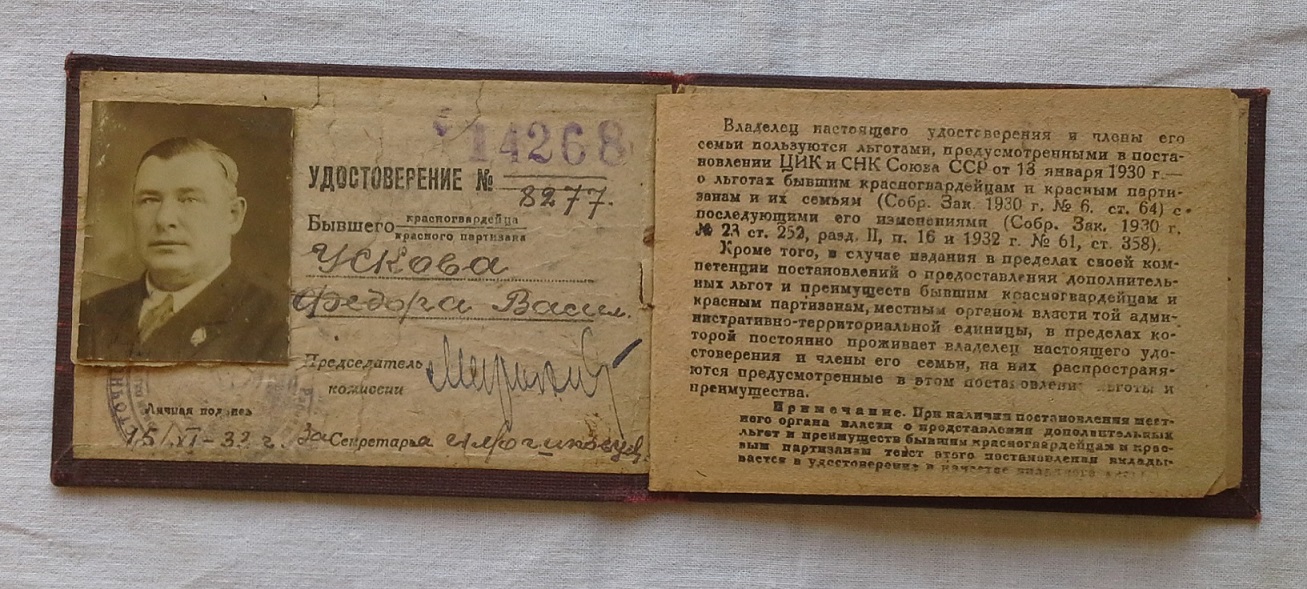 14268
УДОСТОВЕРЕНИЕ №
3277.
Бывшего красногвардейца
красного партизана
Ускова
Федора Васил.
Председатель
комиссии
Личная подпись
15/VI-32 г. За Секретаря
Владелец настоящего удостоверения и члены его
семьи пользуются льготами, предусмотренными в поста-
новлении ЦИК и СНК Союза ССР от 13 января 1930 г.—
о льготах бывшим красногвардейцам и красным парти-
занам и их семьям (Собр. Зак. 1930 г. № 6. ст. 64) с
последующими его изменениями (Собр. Зак. 1930 г.
№ 23 ст. 252, разд. II, п. 16 и 1932 г. № 61, ст. 358).
Кроме того, в случае издания в пределах своей ком-
петенции постановлений о предоставлении дополнитель-
ных льгот и преимуществ бывшим красногвардейцам и
красным партизанам, местным органом власти той адми-
нистративно-территориальной единицы, в пределах ко-
торой постоянно проживает владелец настоящего удо-
стоверения и члены его семьи, на них распространя-
ются предусмотренные в этом постановлении льготы и
преимущества.
Примечание. При наличии постановления мест-
ного органа власти о представлении дополнительных
льгот и преимуществ бывшим красногвардейцам и крас-
ным партизанам текст этого постановления вклады-
вается в удостоверение в качестве